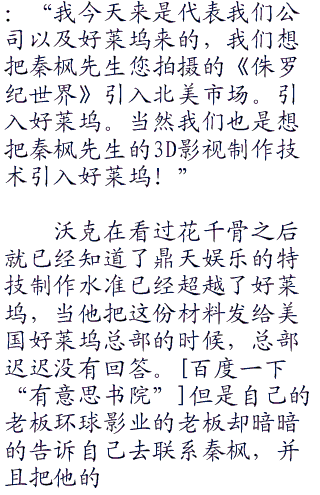 ：“我今天来是代表我们公
司以及好莱坞来的，我们想
把秦枫先生您拍摄的《侏罗
纪世界》引入北美市场。引
入好莱坞。当然我们也是想
把秦枫先生的3D影视制作技
术引入好莱坞！”
沃克在看过花千骨之后
就已经知道了鼎天娱乐的特
技制作水准已经超越了好莱
坞，当他把这份材料发给美
国好莱坞总部的时候，总部
迟迟没有回答。[百度一下
“有意思书院”]但是自己的
老板环球影业的老板却暗暗
的告诉自己去联系秦枫，并
且把他的